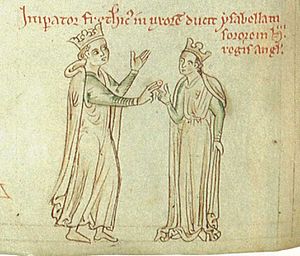 Imperator frethic' in uxorē ducit ysabellam
sororem H.
regis angl'.